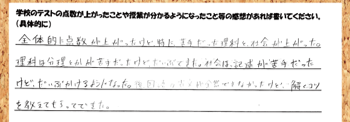 学校のテストの点数が上がったことや授業が分かるようになったこと等の感想があれば書いてください。
(具体的に)
全体的に点数が上がったけど特に苦手だった理科と社会が上がった。
理科は公理とかが苦手だったけどだいぶできた。社会は記述が苦手だった
けど、だいぶかけるようになった。
を教えてもらってできた。